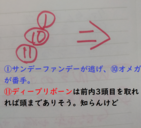 ①
⑩
⑪
⇒
①サンデーファンデーが逃げ、⑩オメガ
が番手。
⑪ディープリボーンは前内3頭目を取れ
れば頭までありそう。知らんけど